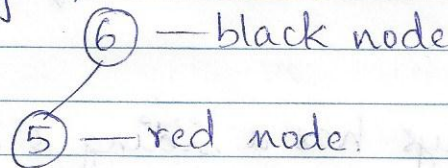 6 — black node
5 — red node.